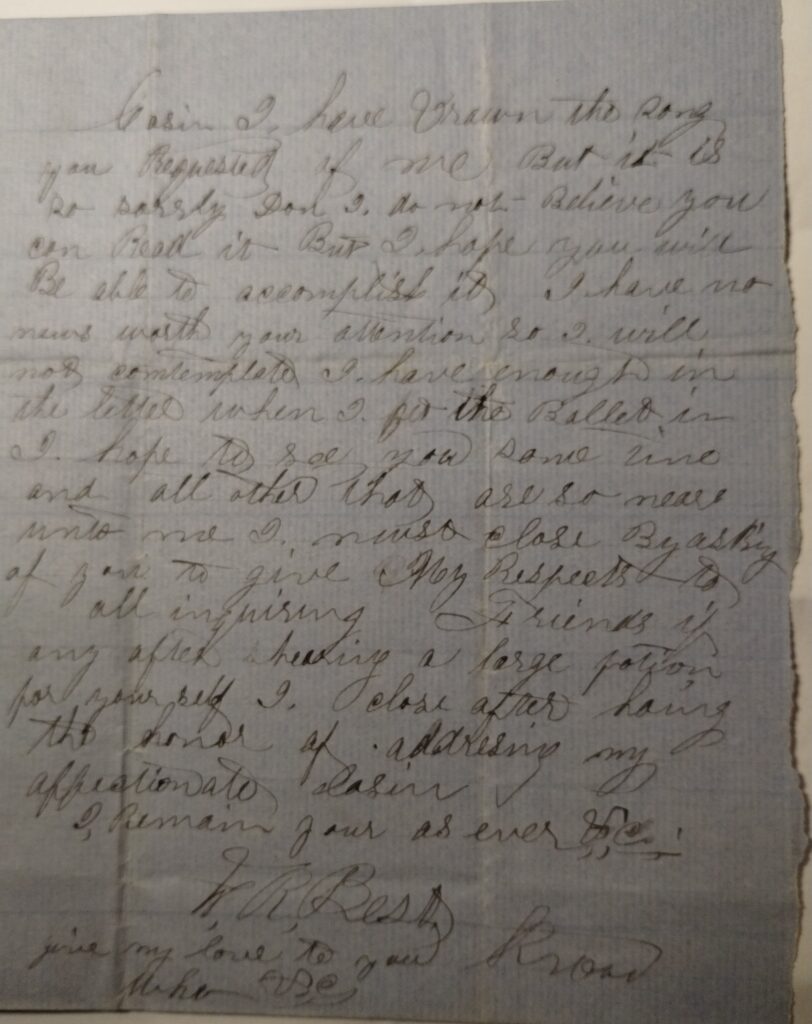 Cosin I. have Drawn the song
you Requested of me But it is
so sorsly Don I. do not Believe you
can Read it But I. hope you will
Be able to accomplish it I. have no
news worth your attention so I. will
not contemplate I. have enough in
the letter when I. get the Ballet in
I. hope to see you some time
and all other that are so neare
unto me I. must close By asking
of you to give My Respects to
all inquiring Friends if
any after shearing a large potion
for yourself I. close after having
the honor of addressing my
affectionate Cosin
I, Remain your as ever &c.
W. R. Best
give my love to you
who &c